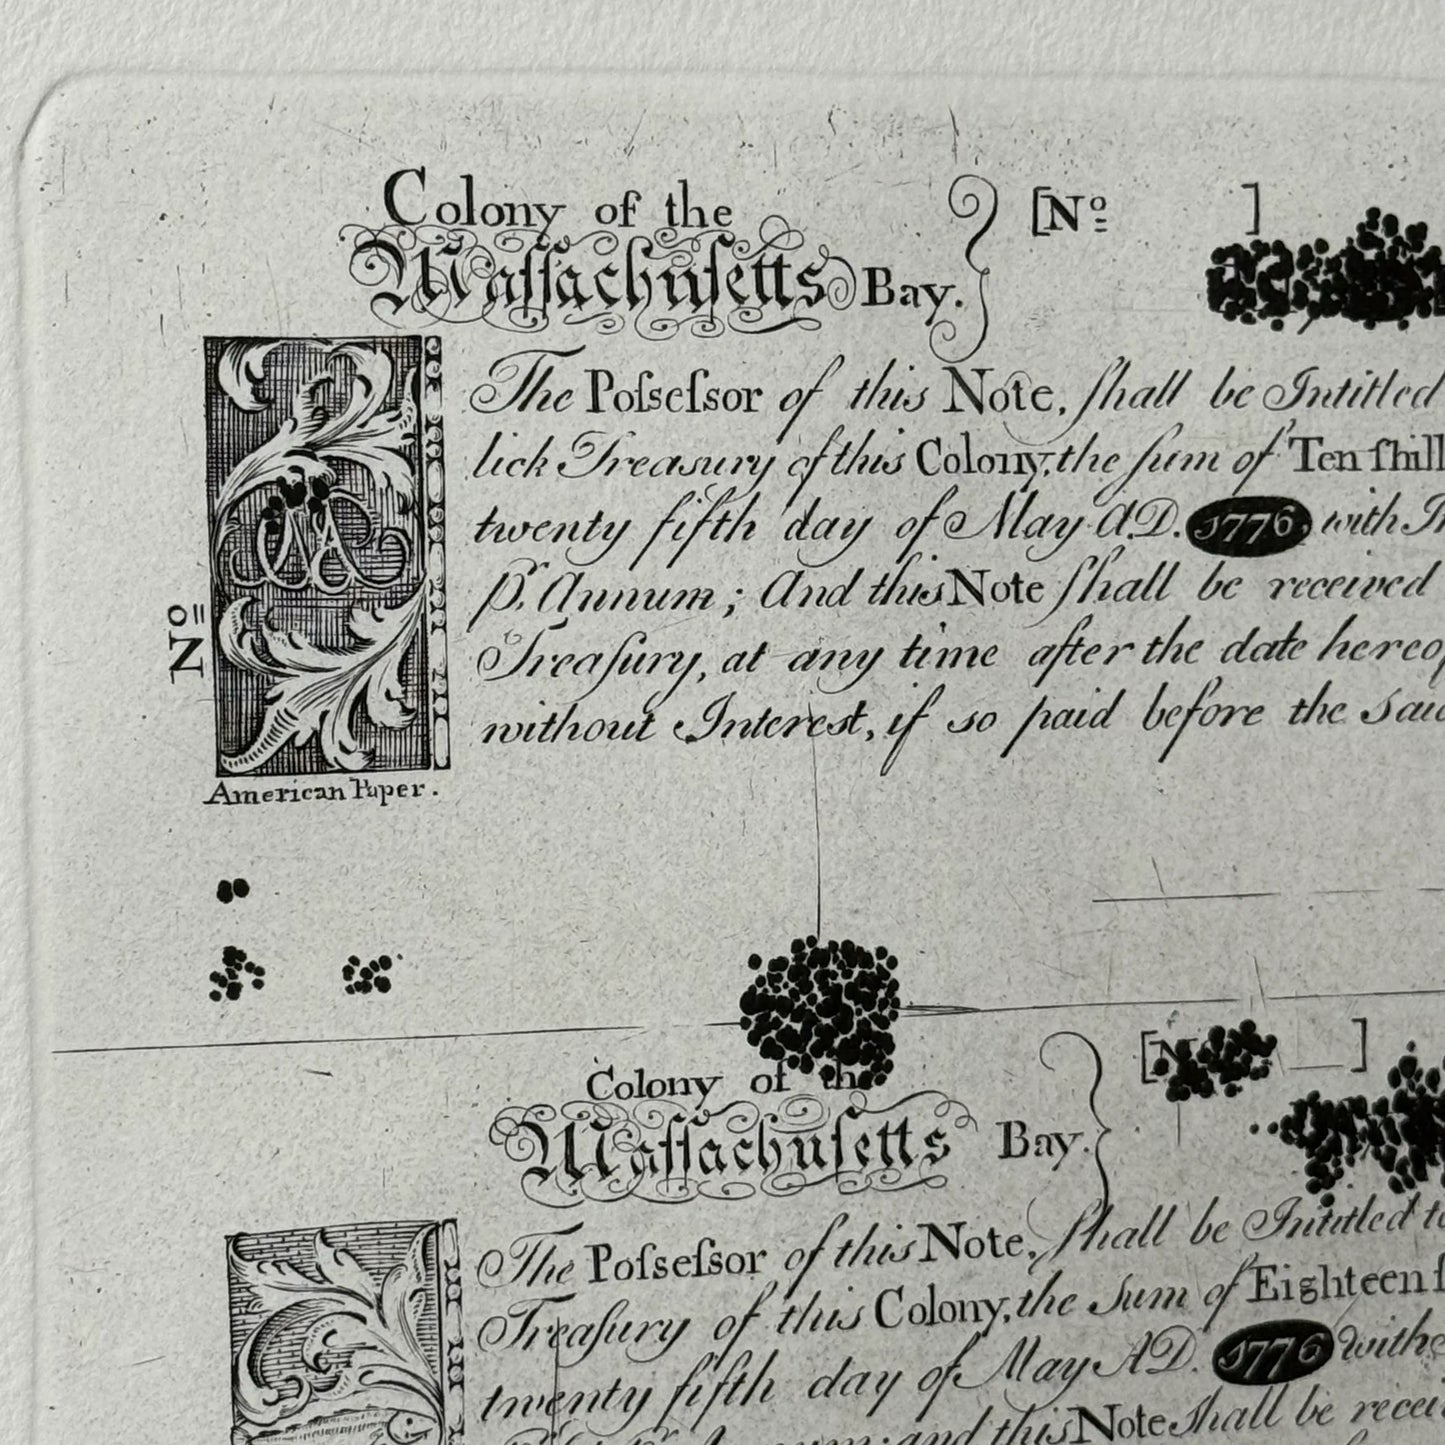 Colony of the
Maſſachuſetts Bay. [No ]
The Poſseſsor of this Note, ſhall be Intitled
lick Treasury of this Colony, the ſum of Ten ſhill
twenty fifth day of May A.D. 1776. with In
Pr. Annum; And this Note ſhall be received
Treaſury, at any time after the date hereof
without Interest, if so paid before the said
No
American Paper.
Colony of the
Maſſachuſetts Bay. [N ]
The Poſseſsor of this Note, ſhall be Intitled to
Treaſury of this Colony, the Sum of Eighteen ſ
twenty fifth day of May AD. 1776 with
Annum; and this Note ſhall be recei